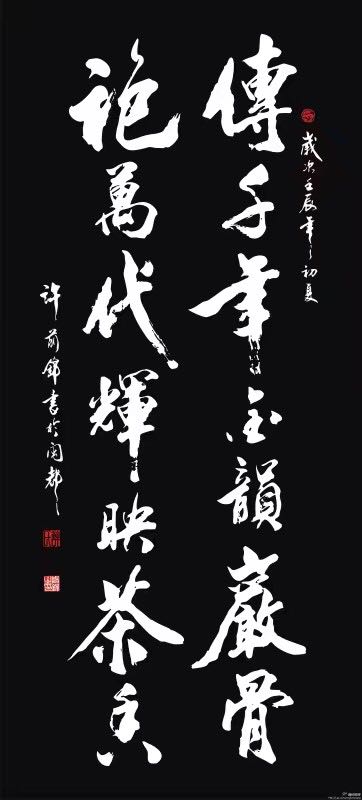 歲次壬辰年初夏
傳千年韻巖骨
袍萬代輝映茶香
許前錦書於閩都